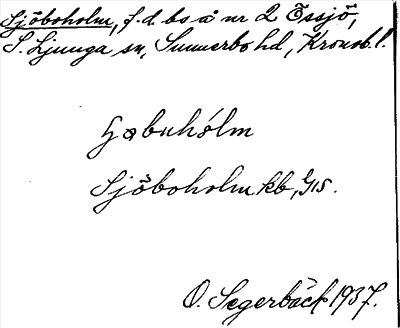 Sjöboholm, f.d. bs å nr 2 Össjö,
S. Ljunga sn, Sunnerbo hd, Kronob. l.
Sjöboholm kb, G15.
O. Segerbäck 1937.